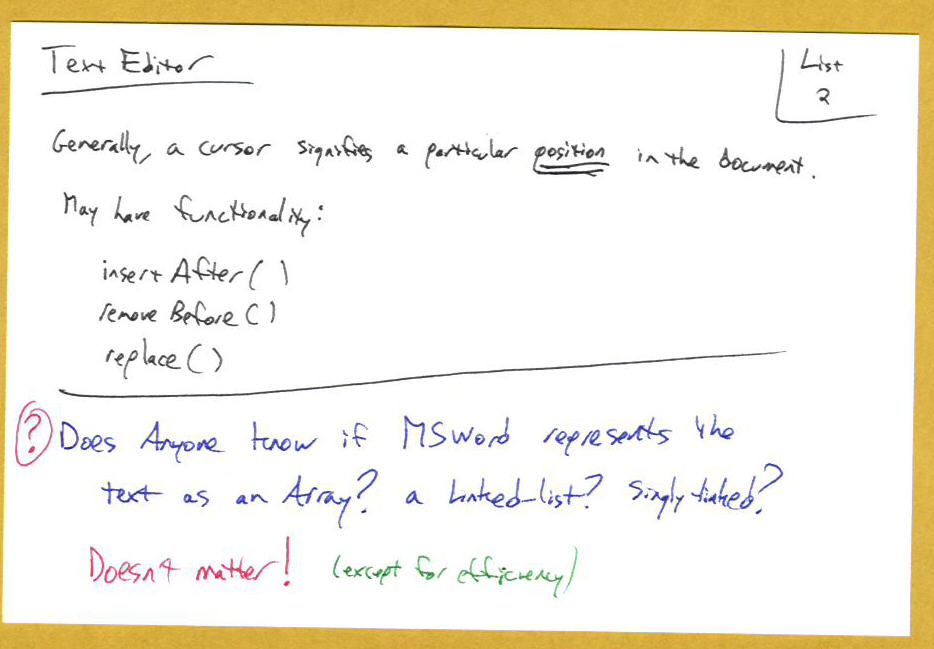 Text Editor
List
2
Generally, a cursor signifies a particular position in the document.
May have functionality:
insertAfter()
removeBefore()
replace()
? Does Anyone know if MSWord represents the
text as an Array? a Linked-list? Singly-linked?
Doesn't matter! (except for efficiency)